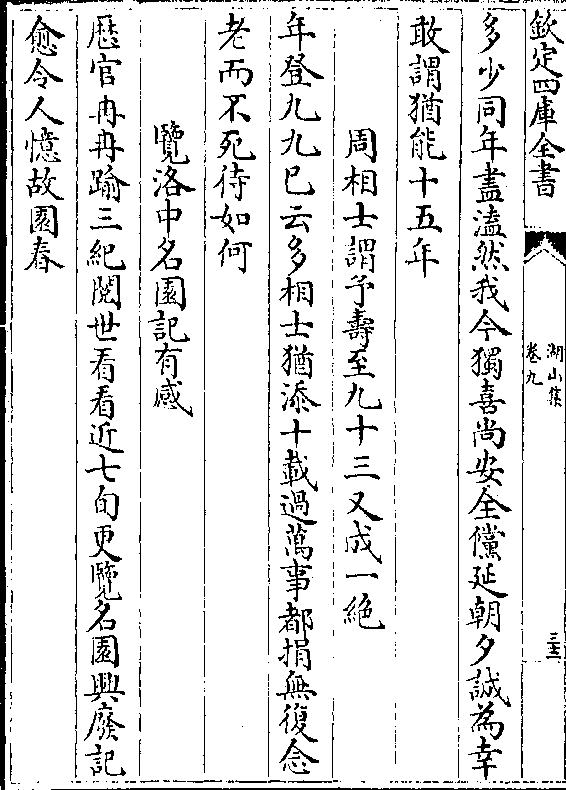 欽定四庫全書
湖山集
卷九
三十二
多少同年盡溘然我今獨喜尚安全儻延朝夕誠為幸
敢謂猶能十五年
周相士謂予壽至九十三又成一絶
年登九九已云多相士猶添十載過萬事都捐無復念
老而不死待如何
覽洛中名園記有感
歴官冉冉踰三紀閱世看看近七旬更覽名園興廢記
愈令人憶故園春